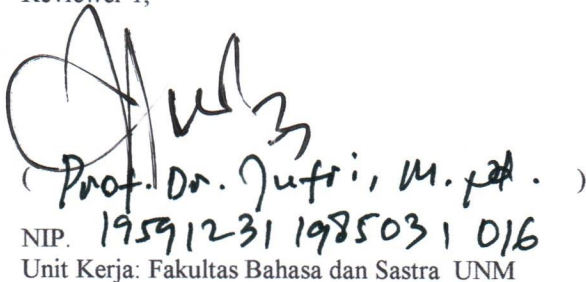 Reviewer 1,
( Prof. Dr. Jufri, M. pd. )
NIP. 19591231 198503 1 016
Unit Kerja: Fakultas Bahasa dan Sastra UNM